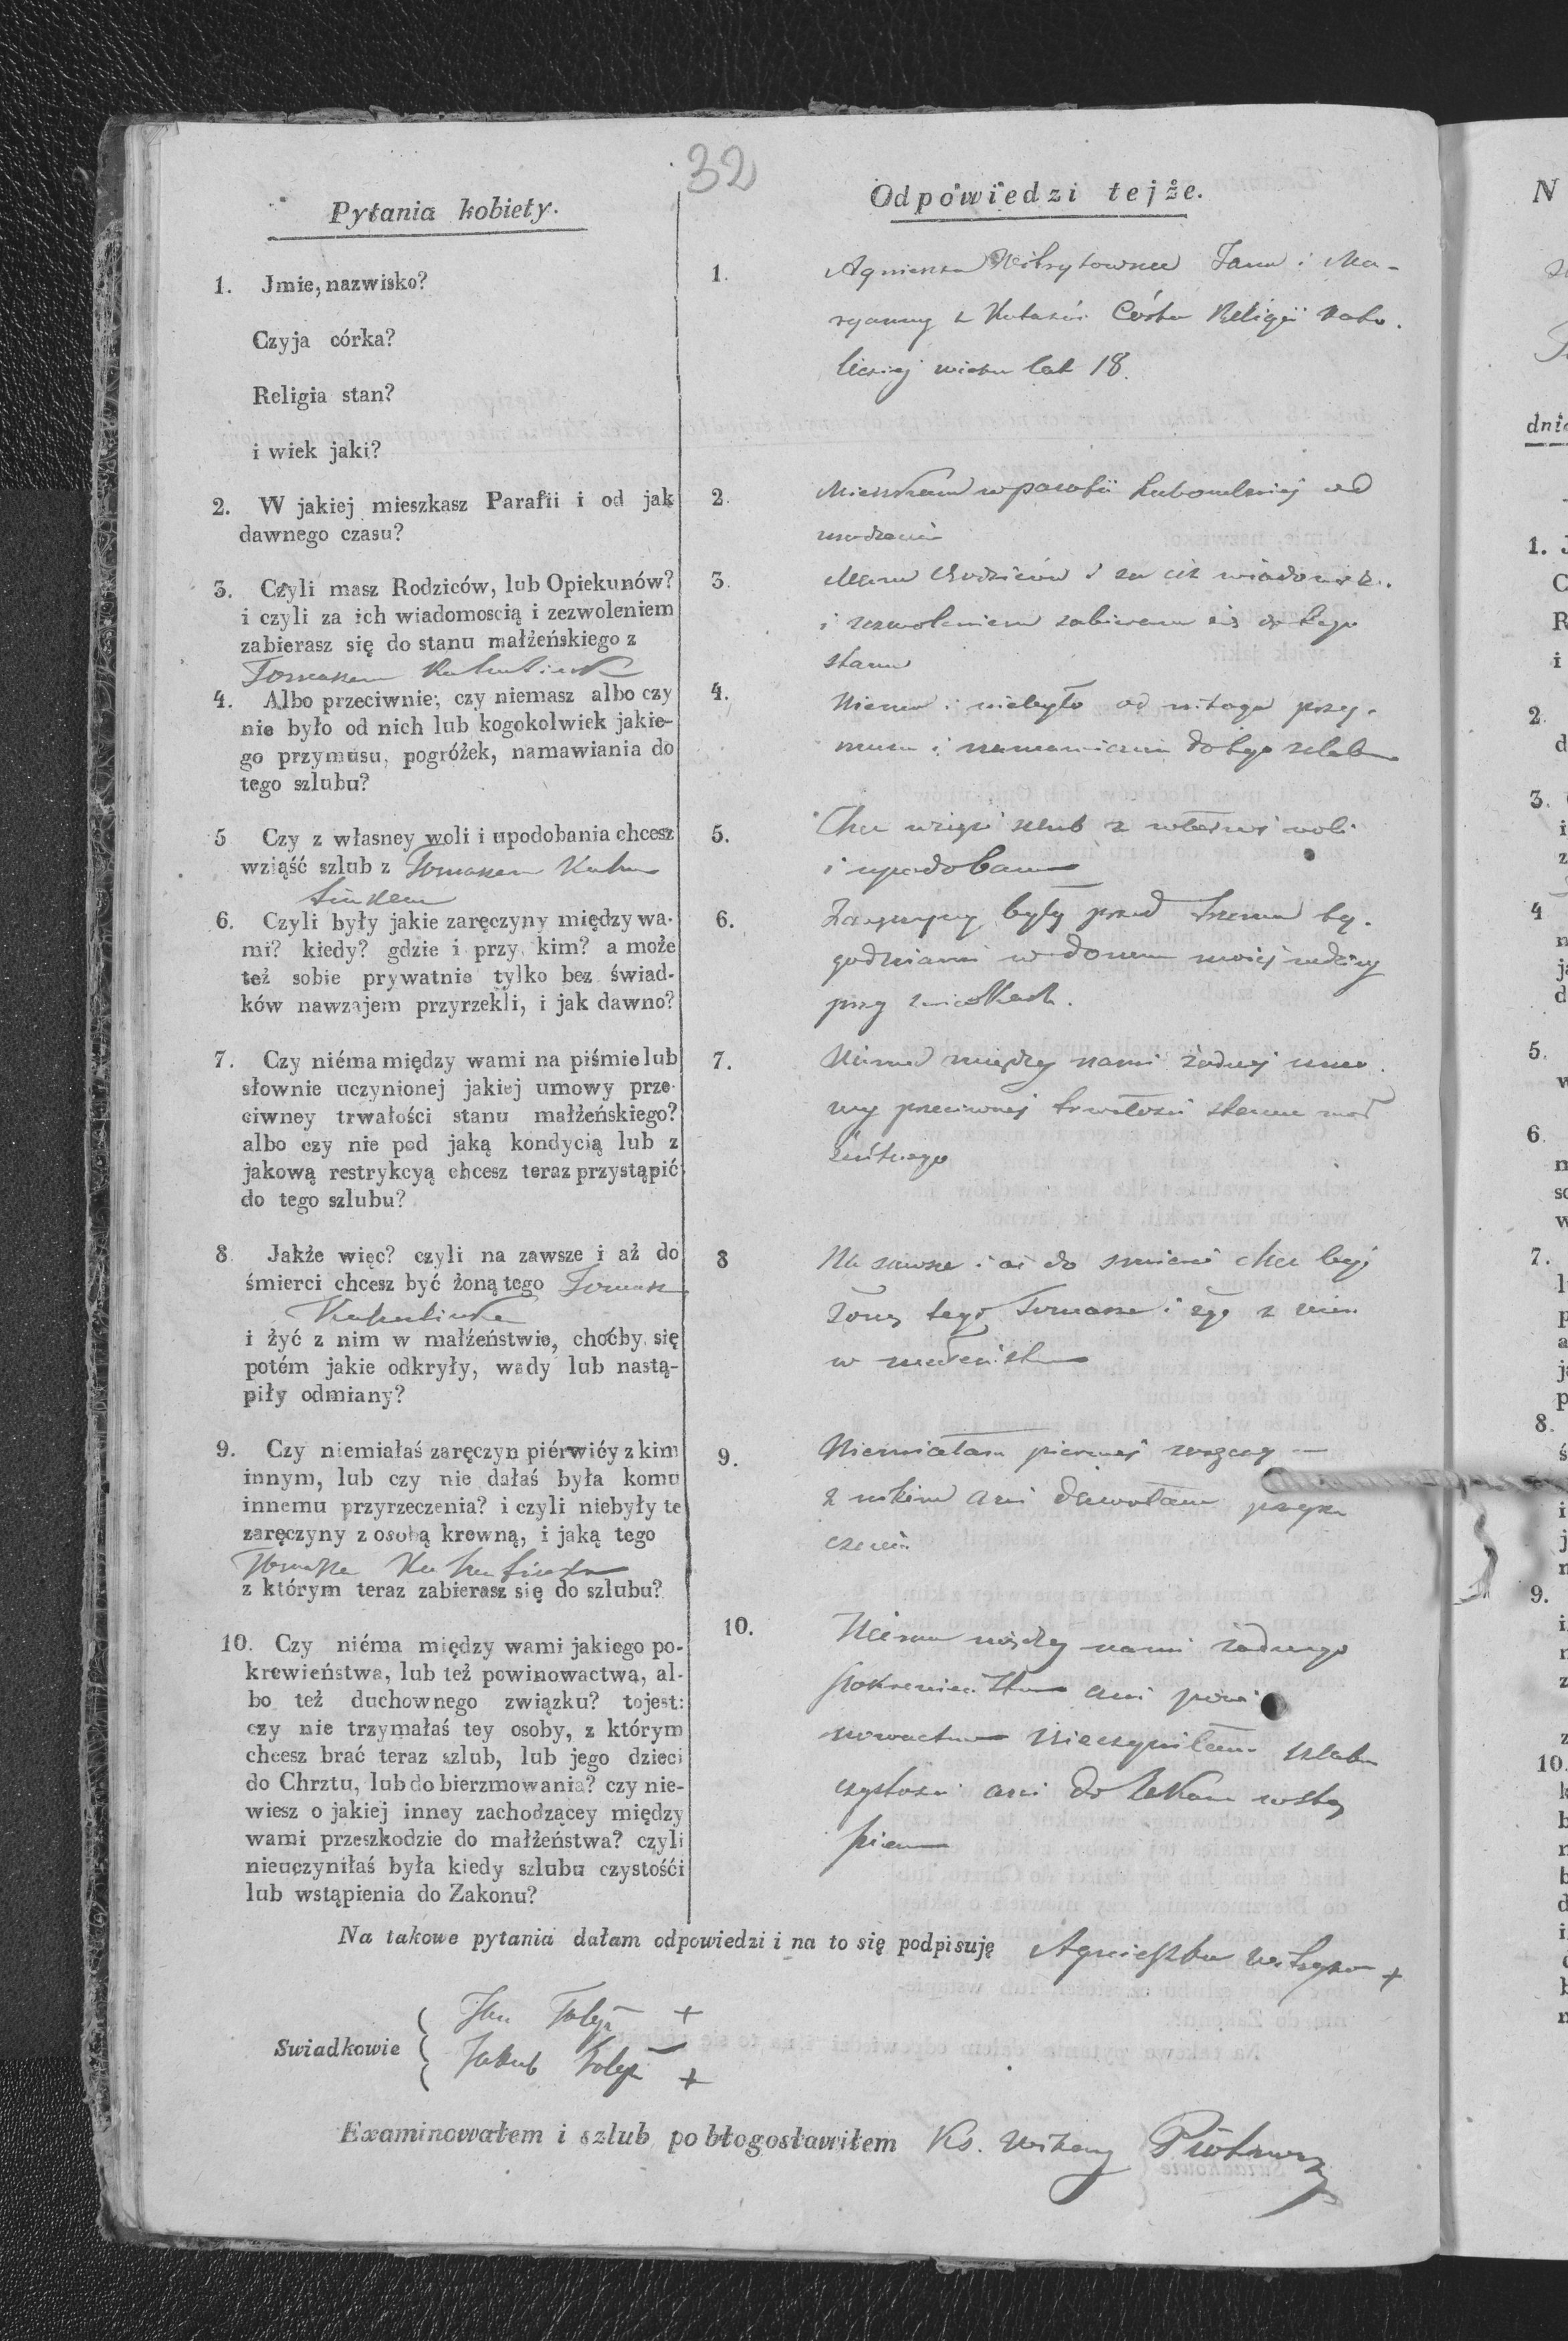 32
Pytania kobiety.
1. Jmie, nazwisko?
Czyja córka?
Religia stan?
i wiek jaki?
2. W jakiej mieszkasz Parafii i od jak
dawnego czasu?
3. Czyli masz Rodziców, lub Opiekunów?
i czyli za ich wiadomoscią i zezwoleniem
zabierasz się do stanu małżeńskiego z
Tomaszem
4. Albo przeciwnie; czy niemasz albo czy
nie było od nich lub kogokolwiek jakie-
go przymusu, pogróżek, namawiania do
tego szlubu?
5 Czy z własney woli i upodobania chcesz
wziąść szlub z Tomaszem
6. Czyli były jakie zaręczyny między wa-
mi? kiedy? gdzie i przy kim? a może
też sobie prywatnie tylko bez świad-
ków nawzajem przyrzekli, i jak dawno?
7. Czy niéma między wami na piśmie lub
słownie uczynionej jakiej umowy prze-
ciwney trwałości stanu małżeńskiego?
albo czy nie pod jaką kondycią lub z
jakową restrykcyą chcesz teraz przystąpić
do tego szlubu?
8 Jakże więc? czyli na zawsze i aż do
śmierci chcesz być żoną tego Tomasza
i żyć z nim w małżeństwie, choćby się
potém jakie odkryły, wady lub nastą-
piły odmiany?
9. Czy niemiałaś zaręczyn piérwićy z kim
innym, lub czy nie dałaś była komu
innemu przyrzeczenia? i czyli niebyły te
zaręczyny z osobą krewną, i jaką tego
Tomasza
z którym teraz zabierasz się do szlubu?
10. Czy niéma między wami jakiego po-
krewieństwa, lub też powinowactwa, al-
bo też duchownego związku? tojest:
czy nie trzymałaś tey osoby, z którym
chcesz brać teraz szlub, lub jego dzieci
do Chrztu, lub do bierzmowania? czy nie-
wiesz o jakiej inney zachodzącey między
wami przeszkodzie do małżeństwa? czyli
nieuczyniłaś była kiedy szlubu czystośći
lub wstąpienia do Zakonu?
Odpowiedzi tejże.
1. Agnieszka Jana i Ma-
ryanny z Córka Religii Kato-
lickiej wieku lat 18.
2. Mieszkam w parafii od
urodzenia
3. Mam Rodziców i za ich
i zezwoleniem zabieram się do tego
stanu
4. Niema i niebyło od nikogo przy-
musu i namawiania do tego szlubu
5. Chcę wziąść szlub z własnej woli
i upodobania
6. Zaręczyny były przed trzema ty-
godniami w domu moiej rodziny
przy świadkach.
7. Niema między nami żadnej umo-
wy przeciwnej trwałości stanu mał
żeńskiego
8 Na zawsze i aż do śmierci chcę być
żoną tego Tomasza i żyć z nim
w małżeństwie
9. Niemiałam pierwej zaręczyn
z nikim ani dawałam przyrze
czenia
10. Niema między nami żadnego
pokrewieństwa ani powi
nowactwa Nieczyniłam szlubu
czystości ani do Zakonu wstą
pienia
Na takowe pytania dałam odpowiedzi i na to się podpisuję Agnieszka +
Swiadkowie Jan +
Jakub +
Examinowałem i szlub pobłogosławiłem Ks. Wikary
N
dnia
1.
2.
3.
4
5.
6.
7.
8.
9.
10.